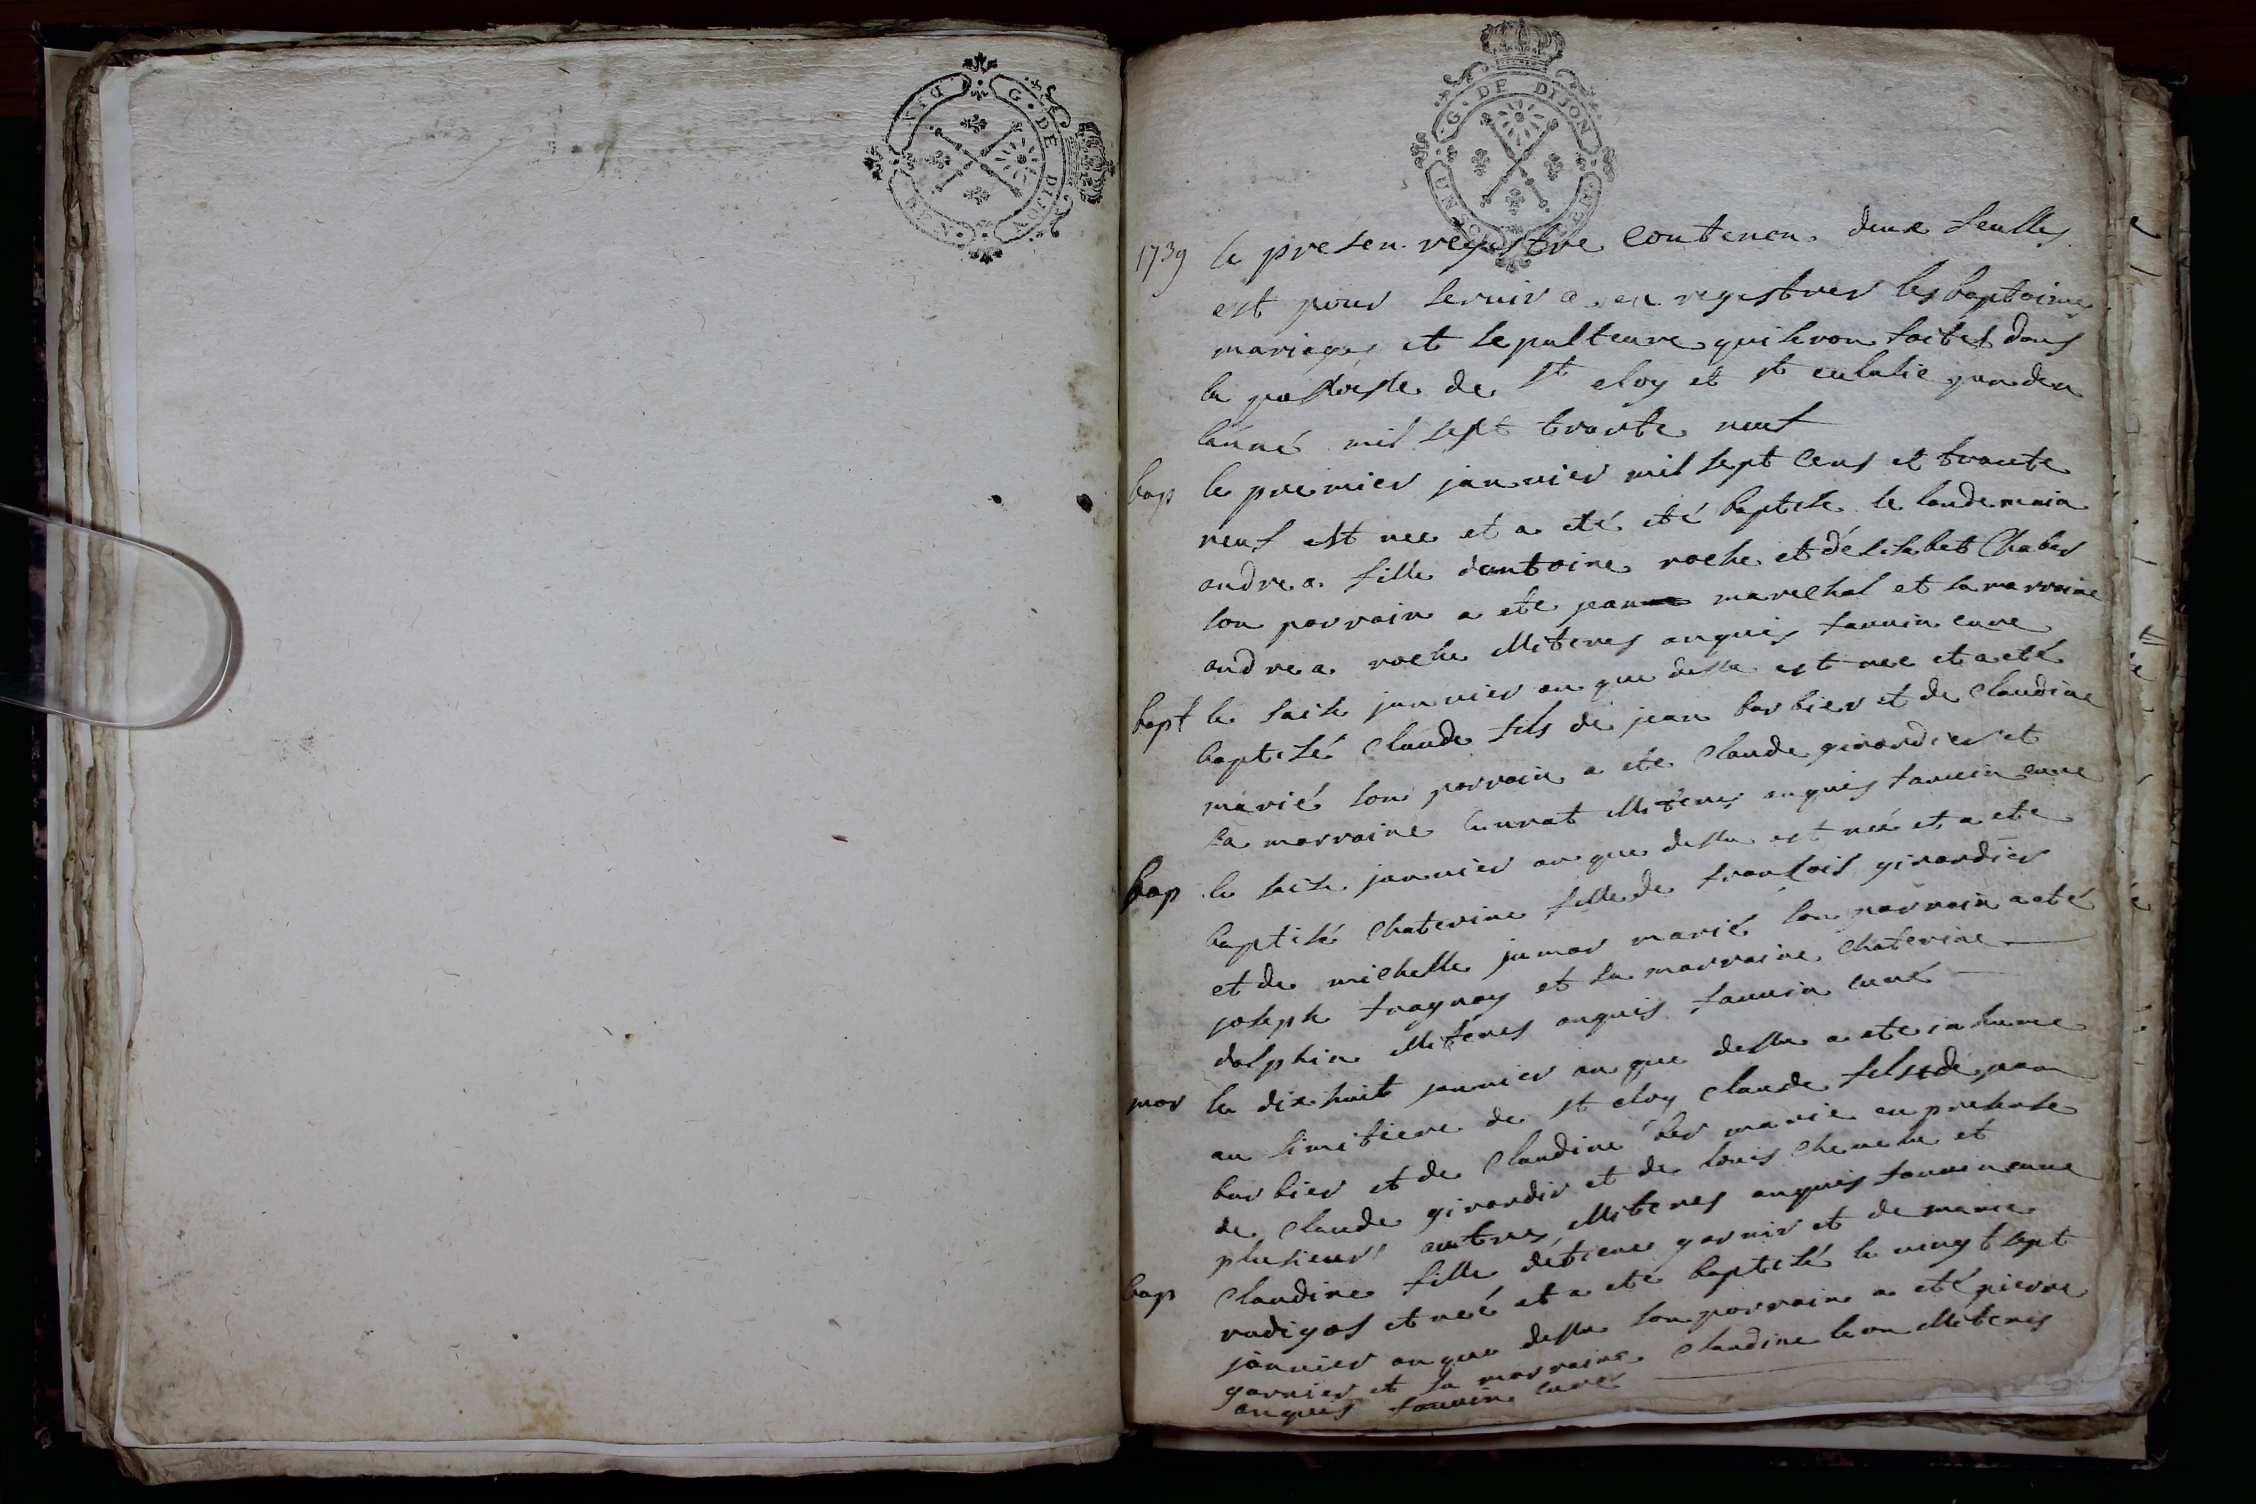 G · DE DIJON
G · DE DIJON
1739 le presen registre contenen deux feulles
est pour servir a en registrer les baptaime
mariages et sepulteure qui seron faites dans
la paroisse de st eloy et st eulalie panden
lanné mil sept trante neuf
bap le premier janvier mil sept cens et trante
neuf est nee et a eté eté baptisé le landemain
andrea fille dantoine roche et délisabet Chaber
son parrain a ete jean marechal et la marraine
andrea roche
le janvier an que dessu est nee et a eté
bapt
baptisé Claude fils de jean barbier et de Claudine
marié son parrain a ete Claude girardier et
sa marraine
bap le janvier an que dessu est neé et a ete
baptisé Chaterine fille de francois girardier
et de michelle jamar marié son parrain a eté
joseph fragnay et la marraine Chaterine
dalphin curé
mor le dixhuit janvier an que dessu a ete in hume
au simitiere de st eloy Claude fils de jean
barbier et de Claudine marie en presense
de Claude girardir et de louis et
plusieurs autres
bap Claudine fille detiene garnir et de marie
radigos et neé et a ete baptisé le vingt sept
janvier an que dessu son parrain a eté pierre
garnier et la marraine Claudine